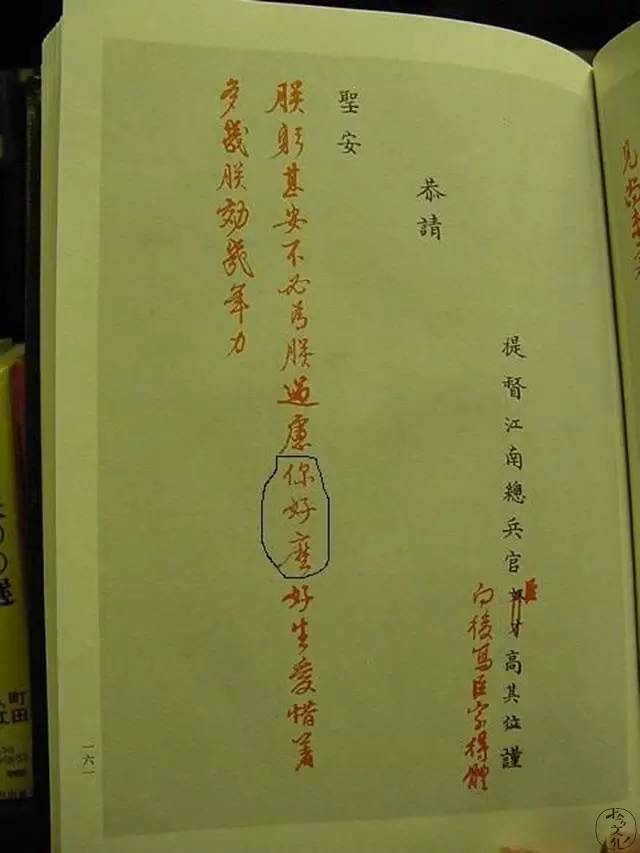 提督江南總兵官奴才高其位謹
臣
向後寫臣字得體
恭請
聖安
朕躬甚安不必為朕過慮你好麼好生愛惜著
多朕効幾年力
一六一
選
町田
見